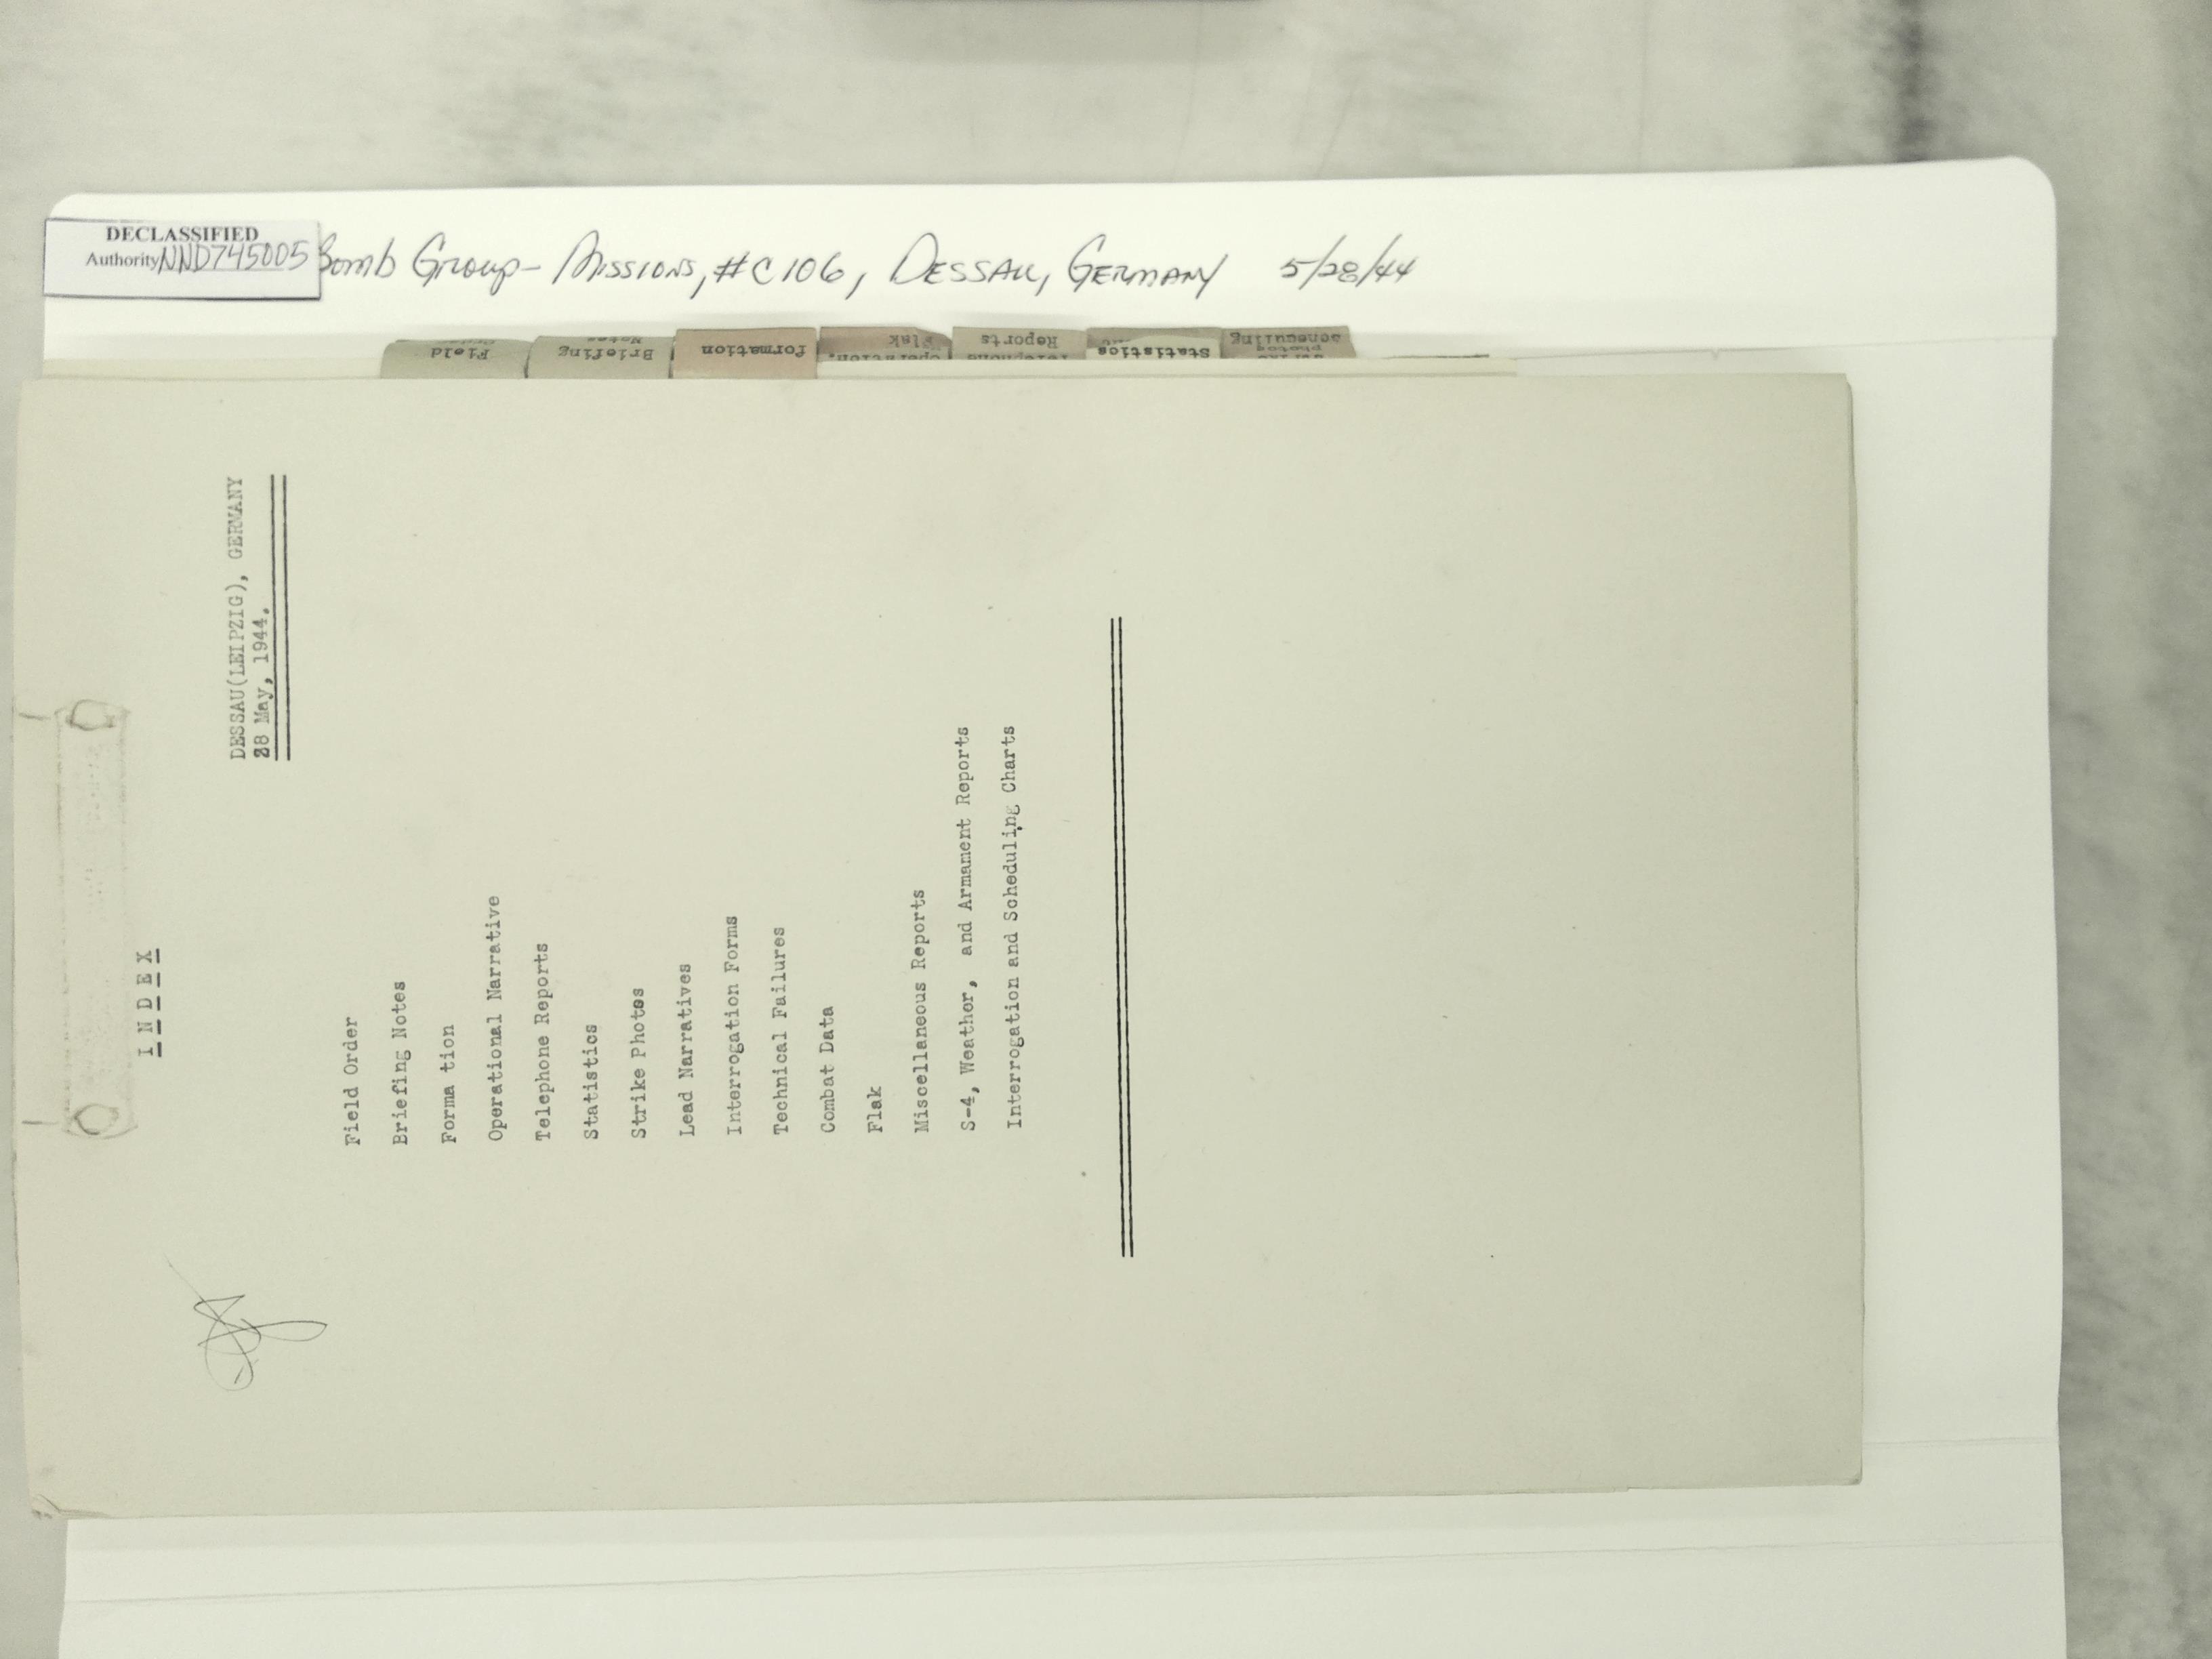 DECLASSIFIED
Authority NND745005
Bomb Group - Missions, #C106, Dessau, Germany 5/28/44
Field
Briefing
Notes
Formation
Flak
Reports
Telephone
Statistics
Scheduling
I N D E X
DESSAU(LEIPZIG), GERMANY
28 May, 1944.
Field Order
Briefing Notes
Forma tion
Operational Narrative
Telephone Reports
Statistics
Strike Photos
Lead Narratives
Interrogation Forms
Technical Failures
Combat Data
Flak
Miscellaneous Reports
S-4, Weather, and Armament Reports
Interrogation and Scheduling Charts